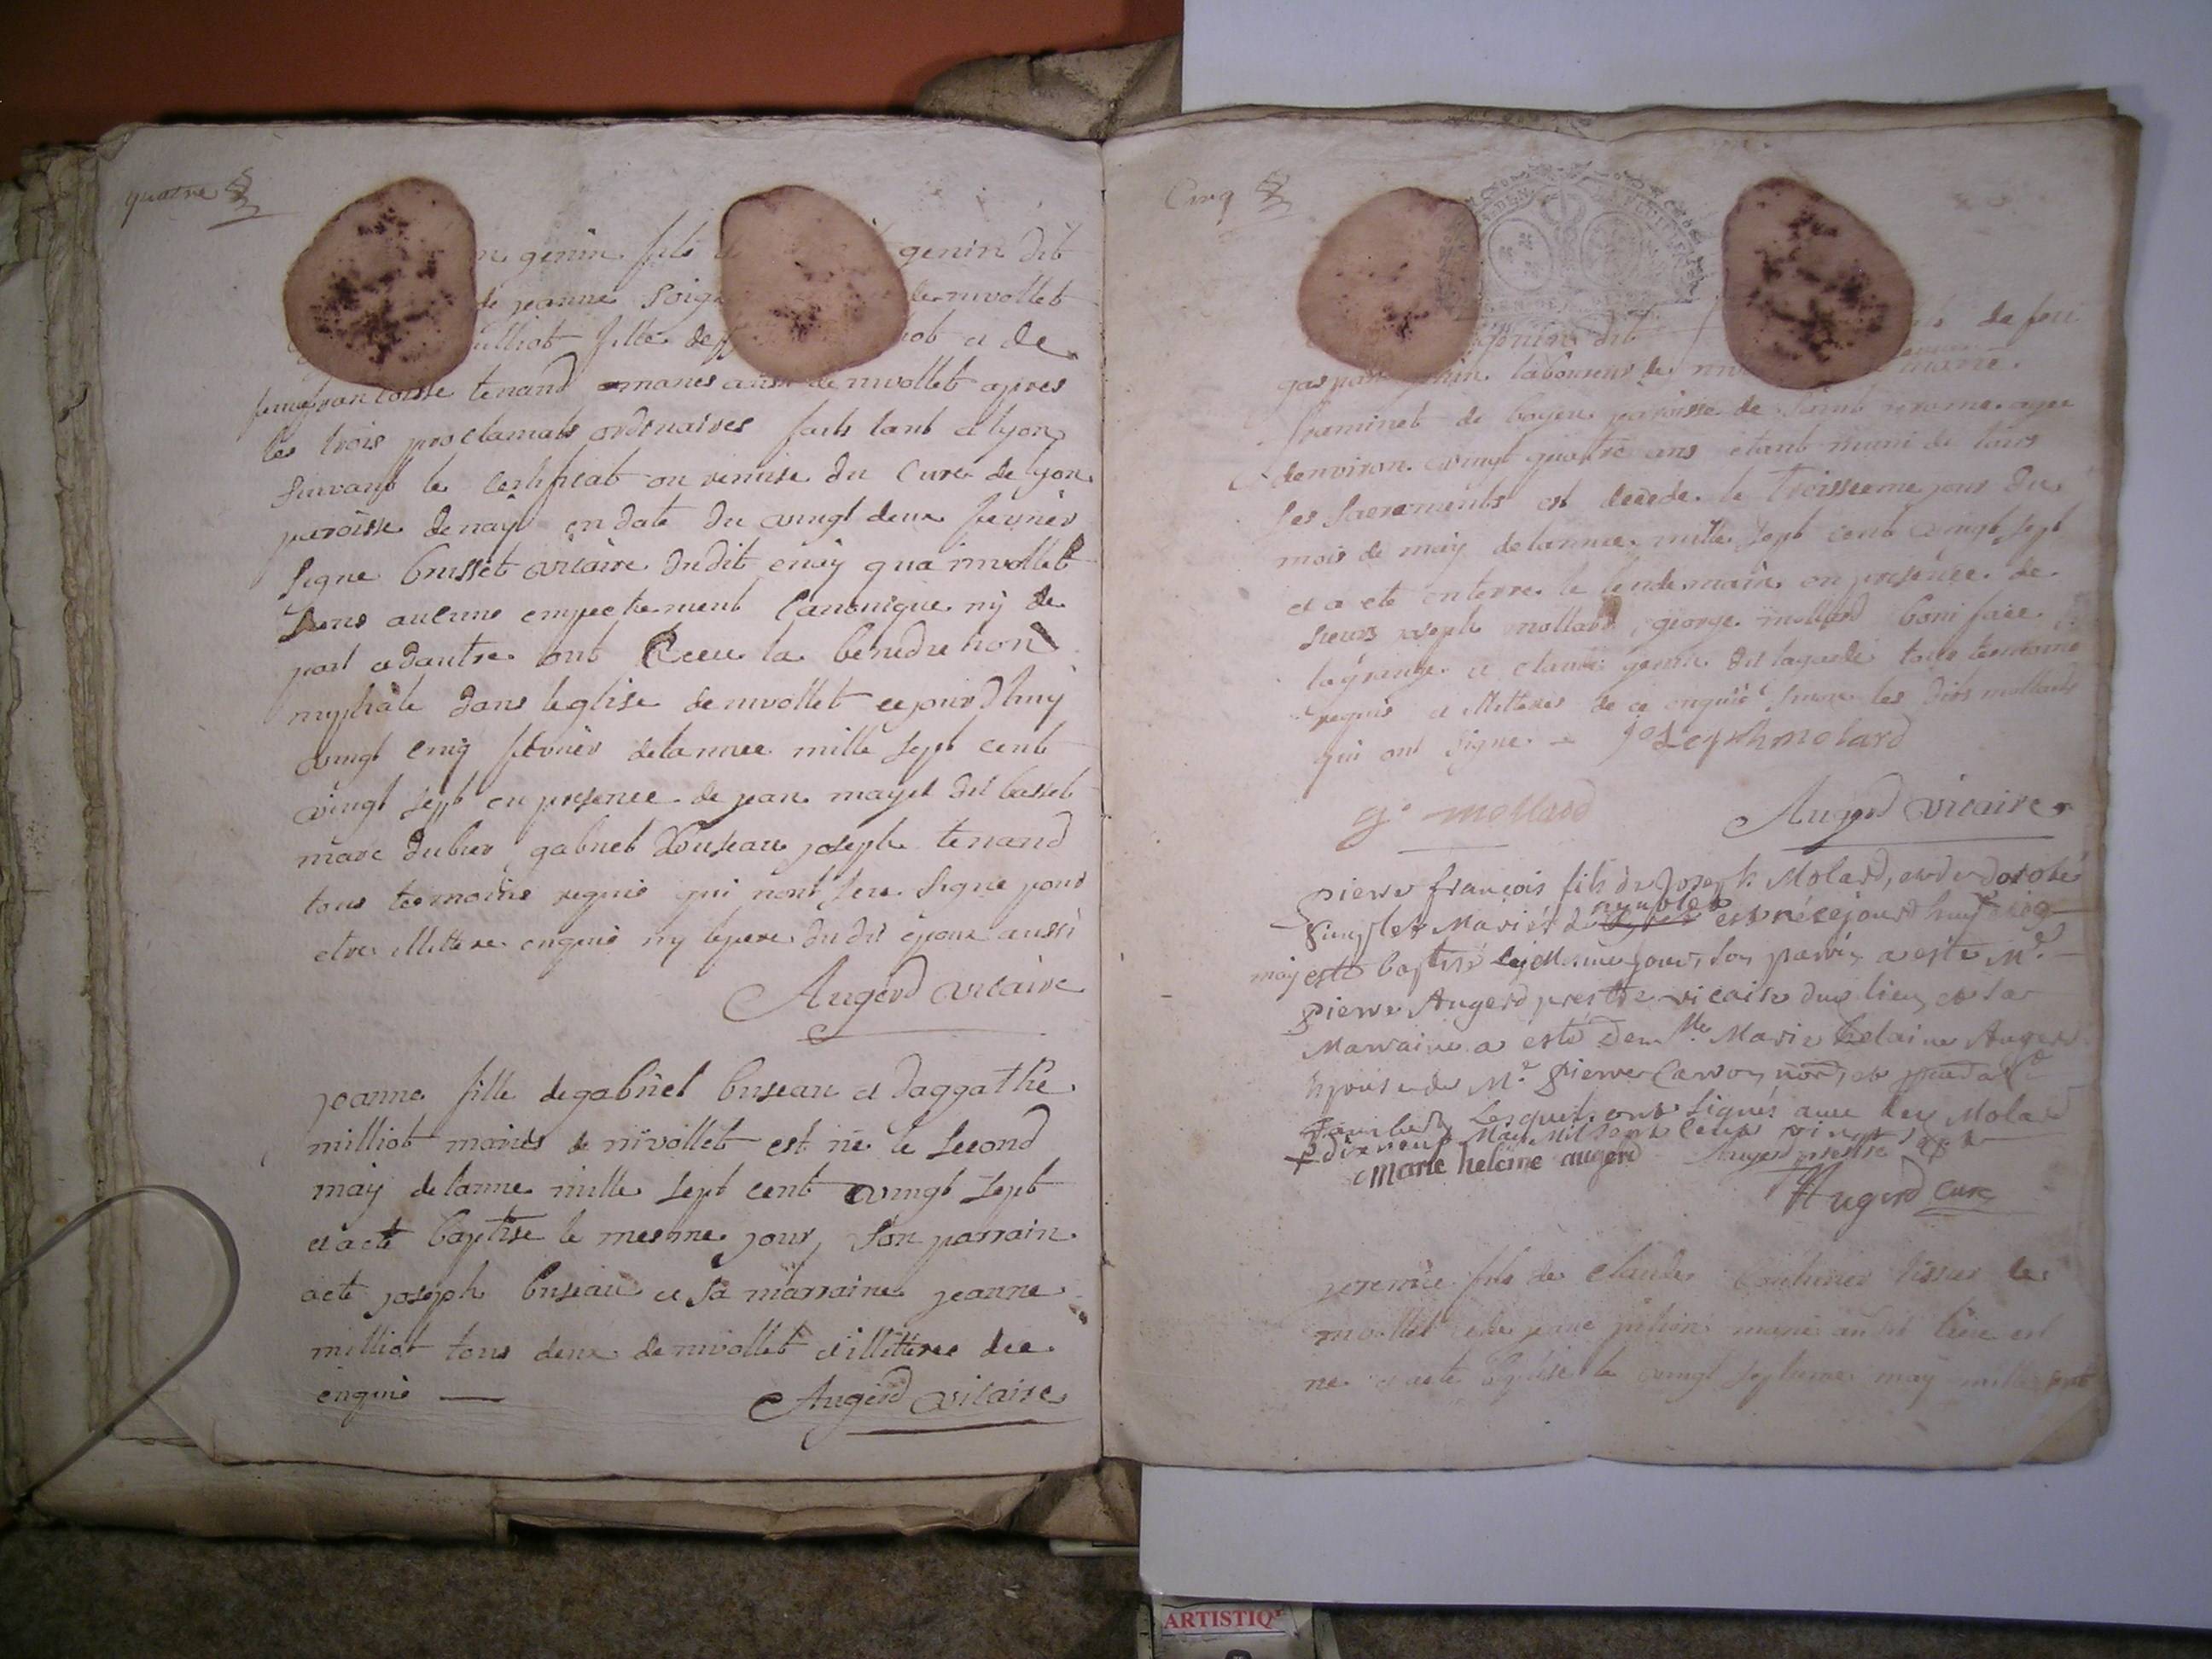 quatre
genin fils genin dit
de jeanne de nivollet
milliot fille et de
francoise tenand manes aussi de nivollet apres
les trois proclamats ordinaires faits tant a lyon
suivant le certificat en remise du Cure de lyon
paroisse denay en date du vingt deux fevrier
signe brusset vicaire dudit enay qua nivollet
sans aucune empechement Canonique ny de
part adautre ont Receu la benediction
nuptiale dans leglise de nivollet cejourdhuy
vingt cinq fevrier delannee mille sept cent
vingt sept en presence de jean mayet dit basset
marc dubier gabriel buseau joseph tenand
tous tesmoins requis qui nont sceu signe pour
etre illettere enquis ny le pere du dit epoux aussi
Augerd vicaire
jeanne fille de gabriel buseau et daggathe
milliot maries de nivollet est ne le second
may delanne mille sept cent vingt sept
et a ete baptise le mesme jour, son parrain
a ete joseph buseau et sa marraine jeanne
milliot tous deux de nivollet et illetteres de ce
enquis
Augerd vicaire
Cinq
genin dit de feu
gaspar genin laboureur de marie
framinet de boyeu paroisse de saint jerome age
denviron vingt quatre ans etant muni de tous
ses sacrements est decede le troisieme jour du
mois de may delannee mille sept cent vingt sept
et a ete enterre le lendemain en presence de
sieurs joseph mollard george mollard boniface
lagrange et claude genin dit lagarde tous tesmoins
requis et illetteres de ce enquis sinon les dits mollards
qui ont signe joseph molard
g. mollard
Augerd vicaire
pierre françois fils de Joseph Molard, et de dorothé
Mariés de est né cejourdhuy
may esté baptisé le mesme jour, son parrin a esté Mr
pierre Augerd prestre vicaire dud lieu, et sa
Marraine a esté Marie helaine Augerd
epouse de Mr pierre
Lesquels ont signés avec led Molard
dixneuf Mai Mil sept cent vingt sept
Marie heleine augerd Augerd prestre
Augerd cure
jeremie fils de claude tissier de
nivollet et de marie audit lieu est
ne et a ete baptise le vingt septieme may mille sept